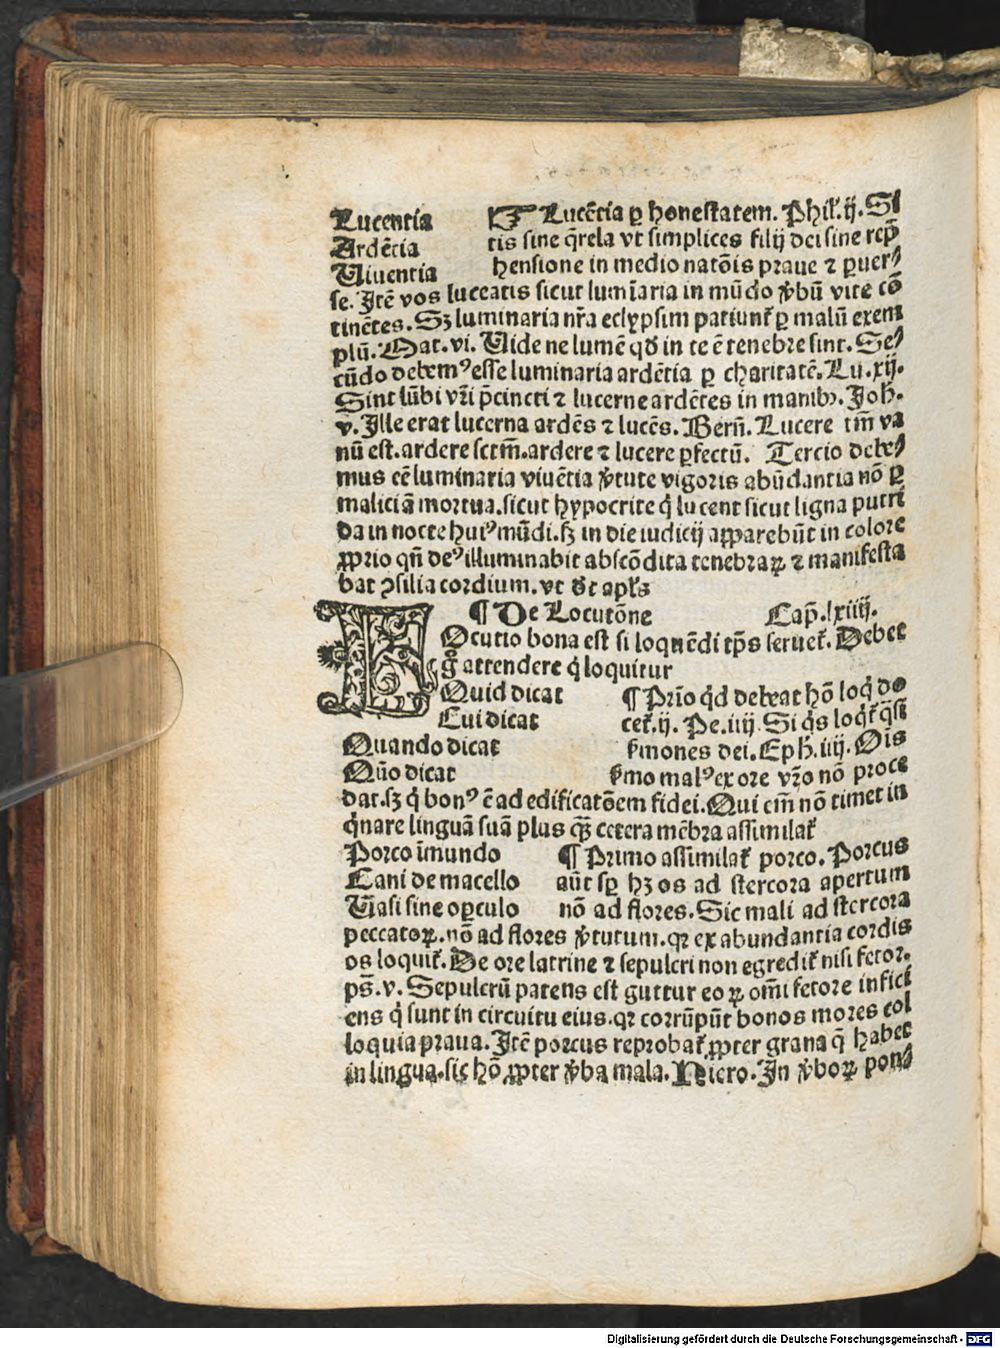 Lucentia ¶ Lucētia ꝑ honestatem. Phil'. ij. Si
Ardētia tis sine q̄rela vt simplices filij dei sine rep̄
Viuentia hensione in medio natōis praue ⁊ ꝑuer-
se. Itē vos luceatis sicut lumīaria in mūdo v̄bū vite cō
tinētes. Sꝫ luminaria nr̄a eclypsim patiunt̄ ꝑ malū exem
plū. Mat. vi. Uide ne lumē qd̄ in te ē tenebre sint. Se-
cūdo debemꝰ esse luminaria ardētia ꝑ charitatē. Lu. xij.
Sint lūbi vr̄i p̄cincti ⁊ lucerne ardētes in manibꝫ. Joh.
v. Ille erat lucerna ardēs ⁊ lucēs. Bern̄. Lucere tm̄ va
nū est. ardere sctm̄. ardere ⁊ lucere ꝑfectū. Tercio debe-
mus eē luminaria viuētia v̄tute vigoris abūdantia nō ꝑ
maliciā mortua. sicut hypocrite q̇ lucent sicut ligna putri
da in nocte huiꝰ mūdi. sꝫ in die iudicij apparebūt in colore
ꝓprio qn̄ deꝰ illuminabit abscōdita tenebraꝝ ⁊ manifesta
bat ꝯsilia cordium. vt dt̄ apl's
¶ De Locutōne Cap̄. lxiiij.
LOcutio bona est si loquēdi tp̄s seruet̄. Debet
g̊ attendere q̇ loquitur
Quid dicat ¶ Prīo qd̄ debeat hō loq̇ do
Cui dicat cet̄. ij. Pe. iiij. Si q̇s loqt̄ q̄si
Quando dicat s̄mones dei. Eph'. iiij. Oīs
Qūo dicat s̄mo malꝰ ex ore vr̄o nō proce
dat. sꝫ q̇ bonꝰ ē ad edificatōem fidei. Qui em̄ nō timet in
q̇nare linguā suā plus qꝫ̄ cetera mēbra assimilat̄
Porco īmundo ¶ Primo assimilat̄ porco. Porcus
Cani de macello aūt sꝑ hꝫ os ad stercora apertum
Uasi sine oꝑculo nō ad flores. Sic mali ad stercora
peccatoꝝ. nō ad flores v̄tutum. qꝛ ex abundantia cordis
os loquit̄. De ore latrine ⁊ sepulcri non egredit̄ nisi fetor.
ps̄. v. Sepulcrū patens est guttur eoꝝ om̄i fetore infici
ens q̇ sunt in circuitu eius. qꝛ corrūpūt bonos mores col
loquia praua. Itē porcus reprobat̄ ꝓpter grana q̄ habet
in lingua. sic hō ꝓpter v̄ba mala. Hiero. In v̄boꝝ pon-
Digitalisierung gefördert durch die Deutsche Forschungsgemeinschaft - DFG